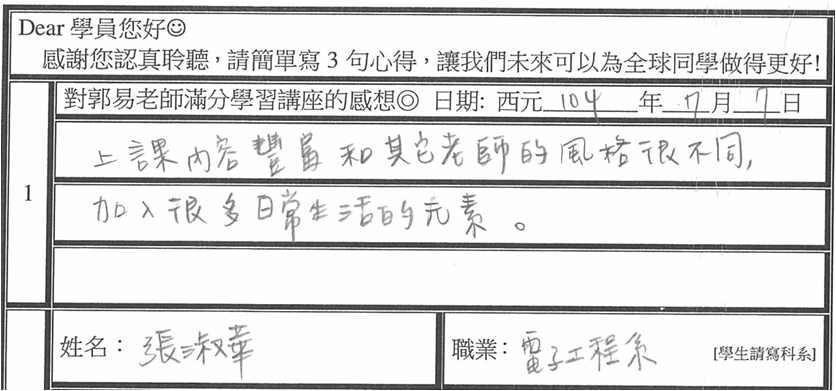 Dear 學員您好☺
感謝您認真聆聽，請簡單寫 3 句心得，讓我們未來可以為全球同學做得更好!
對郭易老師滿分學習講座的感想◎ 日期: 西元 104 年 7 月 7 日
1
上課內容豐富和其它老師的風格很不同，
加入很多日常生活的元素。
姓名：張淑華
職業：電子工程系 [學生請寫科系]